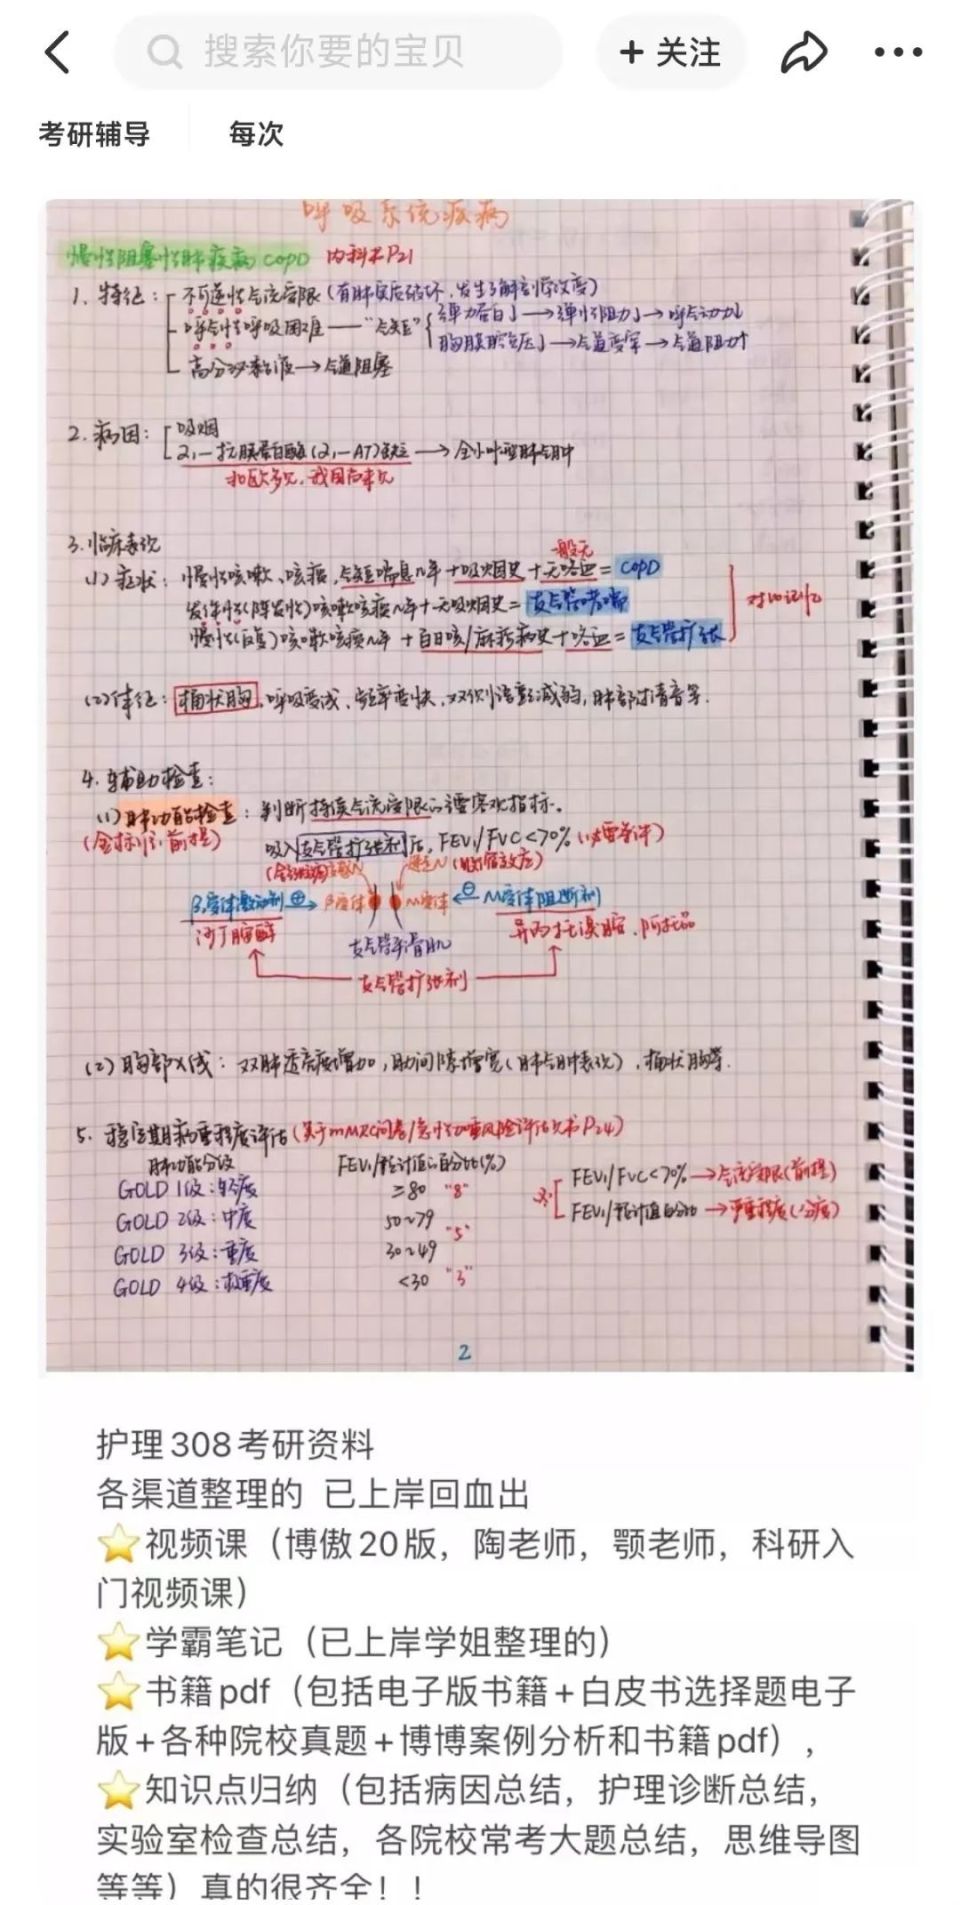 搜索你要的宝贝
+ 关注
考研辅导 每次
呼吸系统疾病
慢性阻塞性肺疾病 COPD 内科书P21
1. 特征: 不可逆性气流受限(有肺实质破坏,发生了解剖学改变)
呼气性呼吸困难——“气短” 弹力蛋白↓→弹性阻力↓→呼气动力↓
胸膜腔负压↓→气道变窄→气道阻力↑
高分泌黏液→气道阻塞
2. 病因: 吸烟
α₁-抗胰蛋白酶(α₁-AT)缺乏→全小叶型肺气肿
北欧多见,我国尚未见
3. 临床表现
一般无
(1) 症状: 慢性咳嗽、咳痰、气短喘息n年+吸烟史+无咯血=COPD
发作性(阵发性)咳嗽咳痰n年+无吸烟史=支气管哮喘
对比记忆
慢性(反复)咳嗽咳痰n年+百日咳/麻疹病史+咯血=支气管扩张
(2) 体征: 桶状胸、呼吸变浅、频率变快、双侧语颤减弱,肺部过清音等.
4. 辅助检查:
(1) 肺功能检查: 判断持续气流受限的主要客观指标。
(金标准、前提)
吸入支气管扩张剂后, FEV₁/FVC<70% (必要条件)
β受体激动剂 ⊕→ β受体 M受体 ←⊖ M受体阻断剂
沙丁胺醇 支气管平滑肌 异丙托溴胺、阿托品
支气管扩张剂
(2) 胸部X线: 双肺透亮度增加,肋间隙增宽(肺气肿表现),桶状胸等.
5. 稳定期病重程度评估(关于mMRC问卷/急性加重风险评估见书P24)
肺功能分级 FEV₁/预计值的百分比(%)
GOLD 1级:轻度 ≥80 "8"
FEV₁/FVC<70%→气流受限(前提)
GOLD 2级:中度 50~79
FEV₁/预计值百分比→严重程度(分度)
"5"
GOLD 3级:重度 30~49
GOLD 4级:极重度 <30 "3"
2
护理308考研资料
各渠道整理的 已上岸回血出
⭐视频课(博傲20版,陶老师,颚老师,科研入
门视频课)
⭐学霸笔记(已上岸学姐整理的)
⭐书籍pdf(包括电子版书籍+白皮书选择题电子
版+各种院校真题+博博案例分析和书籍pdf),
⭐知识点归纳(包括病因总结,护理诊断总结,
实验室检查总结,各院校常考大题总结,思维导图
等等)真的很齐全!!